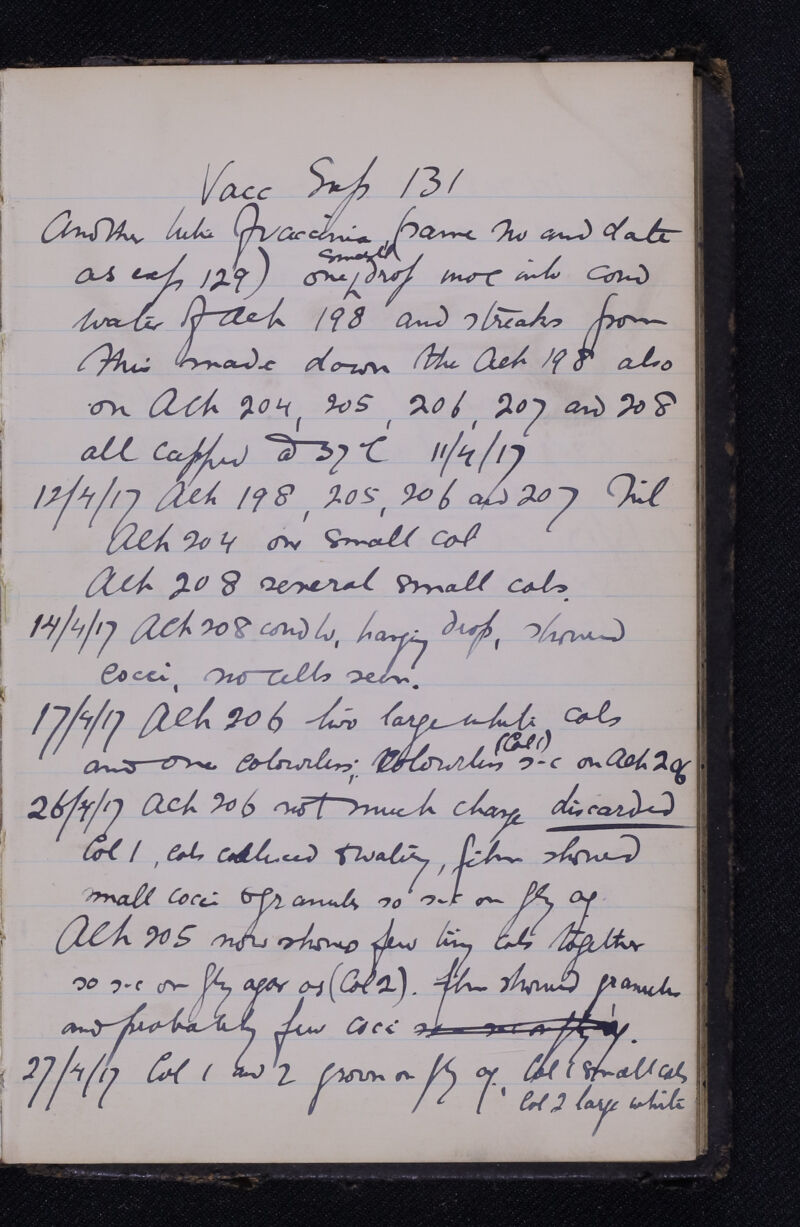 Vacc Exp 131
Another tube of vaccinia (same no and date
as exp 129) one small drop inoc into cond
water of Ach 198 and streaks from
this made down the Ach 198 also
on Ach 204, 205, 206, 207 and 208
all capped @ 37°C 11/4/17
12/4/17 Ach 198, 205, 206 and 207 Nil
Ach 204 one small col
Ach 208 several small cols.
14/4/17 Ach 208 cond w, hanging drop, showed
cocci, no cells seen.
17/4/17 Ach 206 two large white cols
and one colourless; Colourless (Col 1) s-c on Ach 206
26/4/17 Ach 206 not much change discarded
Col 1, cols & watery, film showed
small cocci & granules so s-c on gly ag
Ach 205 now shows few tiny cols together
so s-c on gly agar as (Col 2). film showed granules
and probably few cocci so s-c on gly ag.
27/4/17 Col 1 and 2 grown on gly ag, Col 1 small cols
Col 2 large white